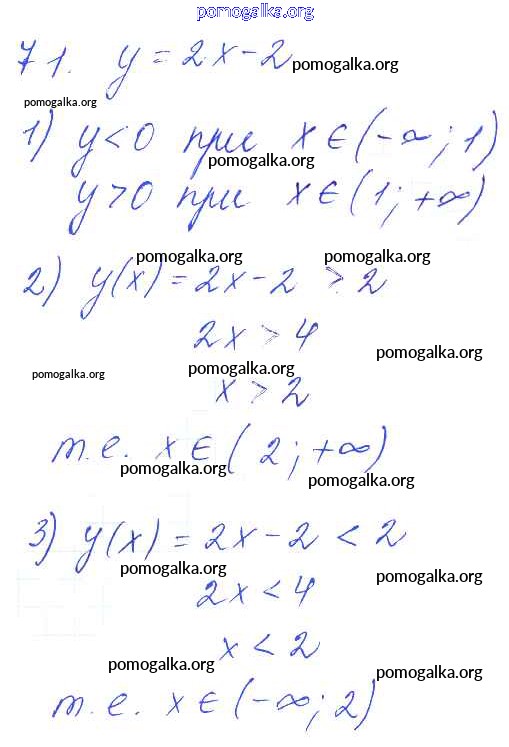 pomogalka.org
71. y = 2x - 2 pomogalka.org
pomogalka.org
1) y < 0 при x ∈ (-∞; 1)
pomogalka.org
y > 0 при x ∈ (1; +∞)
pomogalka.org pomogalka.org
2) y(x) = 2x - 2 > 2
2x > 4
pomogalka.org
pomogalka.org pomogalka.org
x > 2
т.е. x ∈ (2; +∞)
pomogalka.org pomogalka.org
3) y(x) = 2x - 2 < 2
pomogalka.org pomogalka.org
2x < 4
x < 2
pomogalka.org pomogalka.org
т.е. x ∈ (-∞; 2)